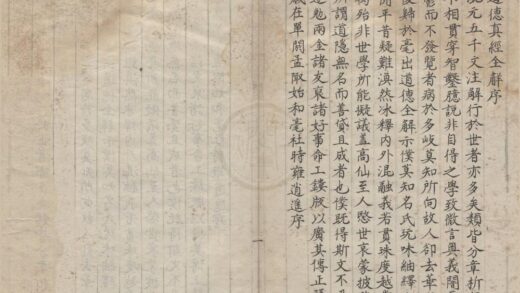 道德真經全解序
元五千文注解行於世者亦多矣類皆分章析
不相貫穿智鑿臆說非自得之學致微言奧義闇
而不發覽者病於多岐莫知所向故人卻去華
復歸於亳出道德全解示僕莫知名氏玩味紬繹
開平昔疑難渙然冰釋內外混融義若貫珠度越
殆非世學所能擬議蓋高仙至人愍世哀蒙披
所謂道隱無名而善貸且成者也僕既得斯文不
兩金諸友裒諸好事命工鏤版以廣其傳正
歲在單閼孟陬始和亳社時雍逍遙序